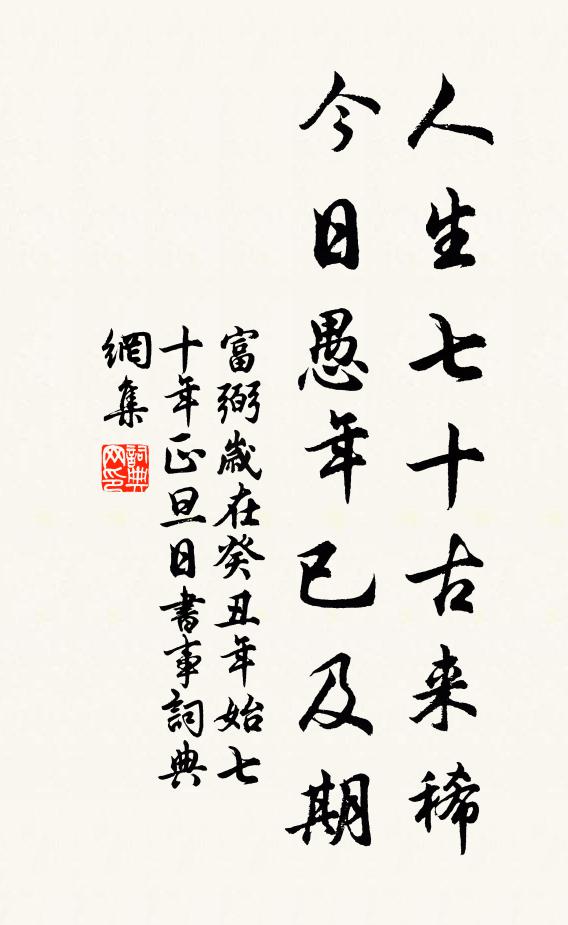 人生七十古来稀
今日愚年已及期
富弼歲在癸丑年始七
十年正旦日書事詞典
網集
詞典网印